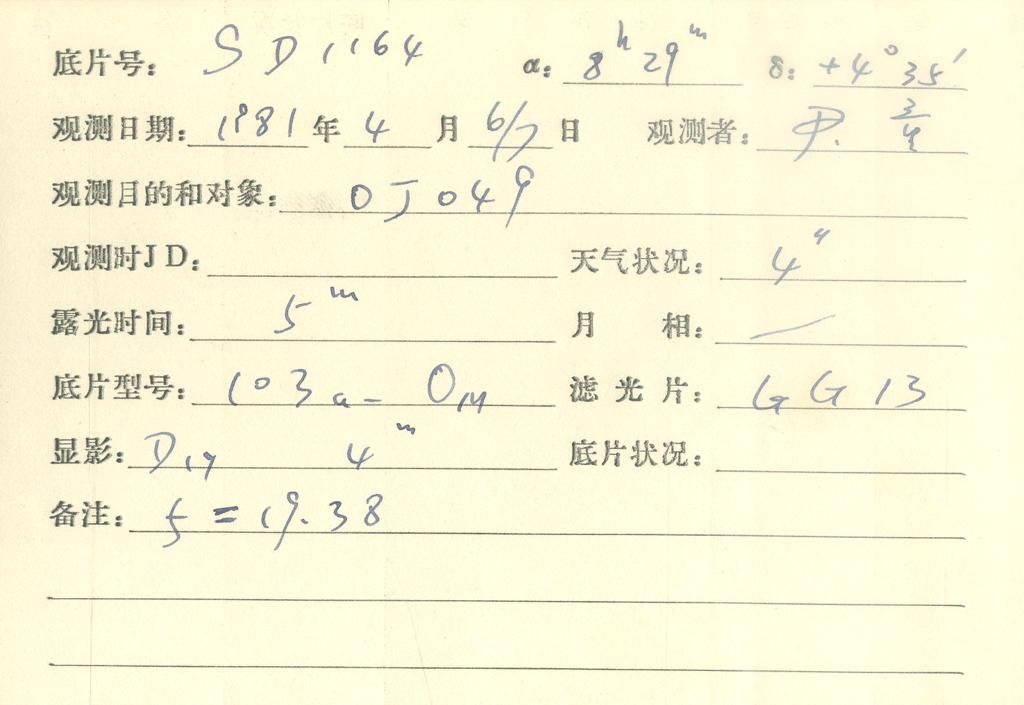 底片号: SD1164 α: 8ʰ 29ᵐ δ: +4° 35′
观测日期: 1981 年 4 月 6/7 日 观测者:
观测目的和对象: OJ 049
观测时JD: 天气状况: 4"
露光时间: 5ᵐ 月 相: —
底片型号: 103a-O 滤光片: GG13
显影: D19 4ᵐ 底片状况:
备注: = 19.38